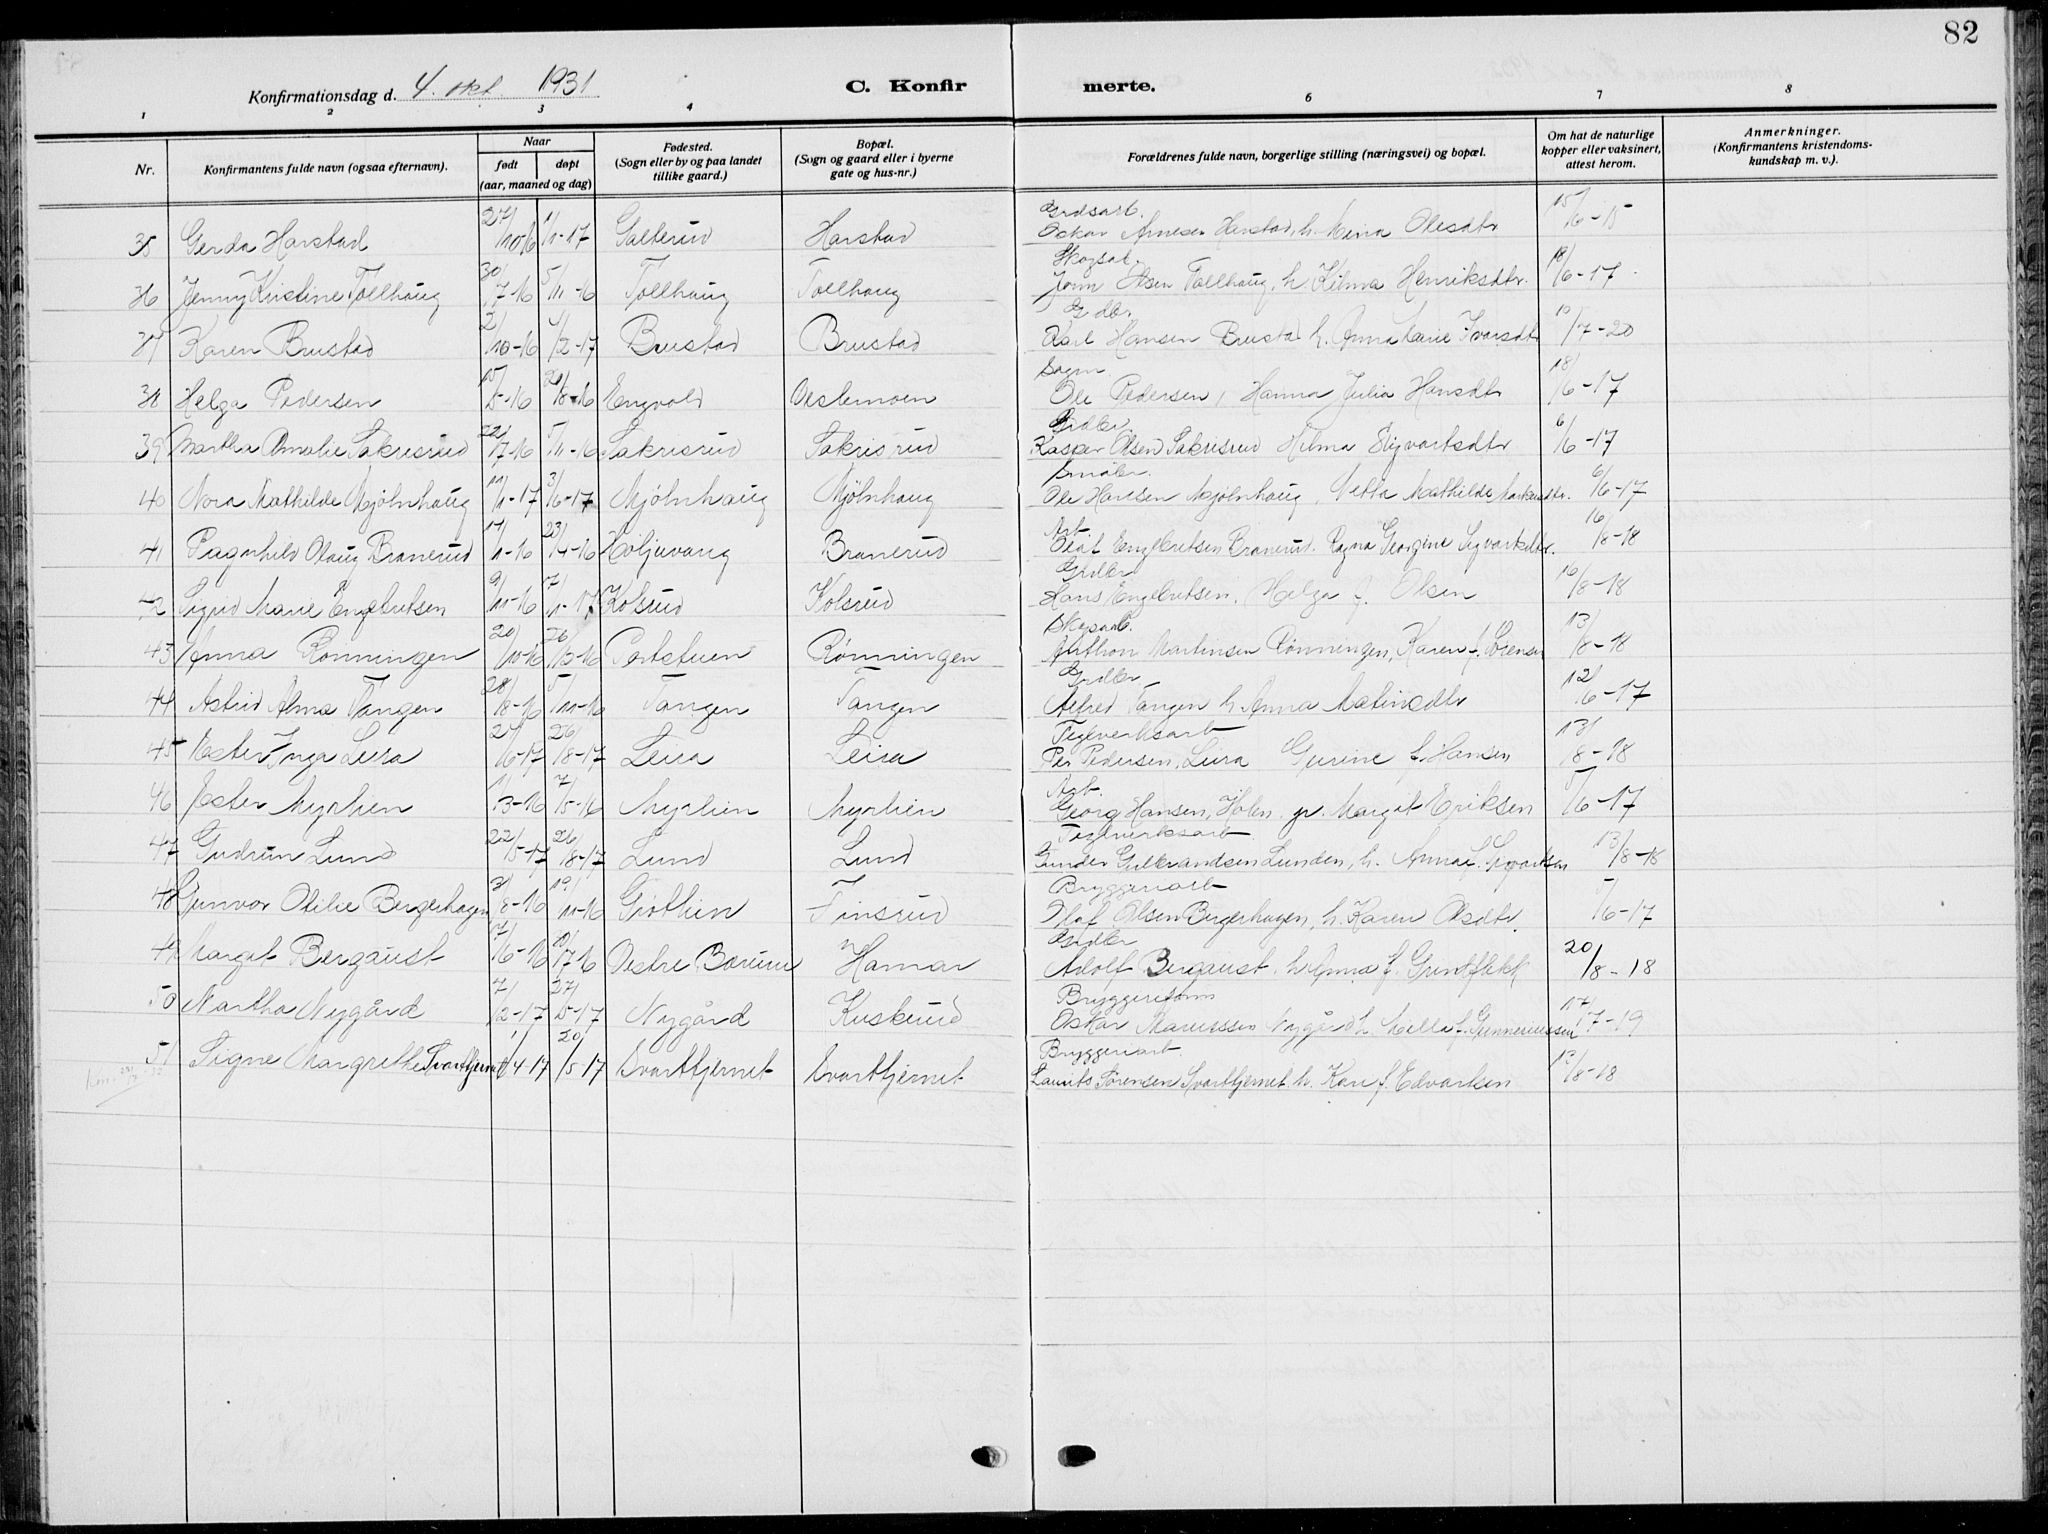 82
Konfirmationsdag d. 4. okt. 1931 C. Konfir merte.
1 2 3 4 6 7 8
Nr. Konfirmantens fulde navn (ogsaa efternavn). Naar født døpt (aar, maaned og dag) Fødested. (Sogn eller by og paa landet tillike gaard.) Bopæl. (Sogn og gaard eller i byerne gate og hus-nr.) Forældrenes fulde navn, borgerlige stilling (næringsvei) og bopæl. Om hat de naturlige kopper eller vaksinert, attest herom. Anmerkninger. (Konfirmantens kristendoms-kundskap m. v.).
Grdsarb.
35 Gerda Harstad 27/10-16 1/1-17 Sætterud Harstad Oskar Arnesen Harstad, h. Mina Olesdtr 15/6-15
Skogsarb.
36 Jenny Kristine Tollhaug 30/7-16 5/11-16 Tollhaug Tollhaug Jonn Olsen Tollhaug, h. Hilma Henriksdtr. 18/6-17
Gdbr.
37 Karen Brustad 2/10-16 4/2-17 Brustad Brustad Karl Hansen Brustad h. Anna Marie Ivarsdtr 10/7-20
38 Helga Pedersen 15/5-16 20/8-16 Engvold Vestemoen Ole Pedersen, Hanna Julia Hansdtr 18/6-17
Grdbr.
39 Martha Amalie Sakrisrud 22/7-16 5/11-16 Sakrisrud Sakrisrud Kasper Olsen Sakrisrud Hilma Sigvartsdtr 6/6-17
Småbr.
40 Nora Mathilde Mjölnhaug 11/1-17 3/6-17 Mjölnhaug Mjölnhaug Ole Hansen Mjölnhaug, Netta Mathilde 6/6-17
Arb.
41 Ragnhild Olaug Branerud 17/1-16 23/4-16 Höljuvang Branerud Olaf Engebretsen Branerud. Ragna Georgine Sigvartsdtr. 16/8-18
Grdbr
42 Sigrid Marie Engebretsen 9/10-16 7/1-17 Kolsrud Kolsrud Hans Engebretsen. Helga f. Olsen 16/8-18
Skogsarb.
43 Anna Rönningen 20/10-16 26/12-16 Portstuen Rönningen Anthon Martinsen Rönningen, Karen f. Sörensen 13/8-18
Grdbr
44 Astrid Alma Tangen 28/8-16 5/11-16 Tangen Tangen Alfred Tangen h. Anna Matinsdtr 12/6-17
Teglverksarb
45 Ester Inga Leira 27/6-17 26/8-17 Leira Leira Per Pedersen, Leira Gurine f. Hansen 13/8-18
Arb.
46 Ester Myrlien 11/3-16 7/5-16 Myrlien Myrlien Georg Hansen, Holen gr. Margit Eriksen 5/6-17
Teglverksarb
47 Gudrun Lund 22/5-17 26/8-17 Lund Lund Gunder Gulbrandsen Lunden, h. Anna f. Sigvartsen 13/8-18
Bryggeriarb
48 Gunvor Otilie Bergerhagen 3/8-16 19/11-16 Grötlien Finsrud Olaf Olsen Bergerhagen, h. Karen Olsdtr. 5/6-17
Grdbr
49 Margit Bergaust 7/6-16 10/7 16 Vestre Börum Hamar Adolf Bergaust h. Anna f. 20/8-18
50 Martha Nygård 7/2-17 27/5-17 Nygård Kuskrud Oskar Mariussen Nygård h. Milla f. Gunneriussen 17/7-19
Bryggeriarb.
51 Signe Margrethe Svarttjernet 1/4-17 20/5-17 Svarttjernet Svarttjernet Laurits Sörensen Svarttjernet h. Kari f. Edvartsen 13/8-18